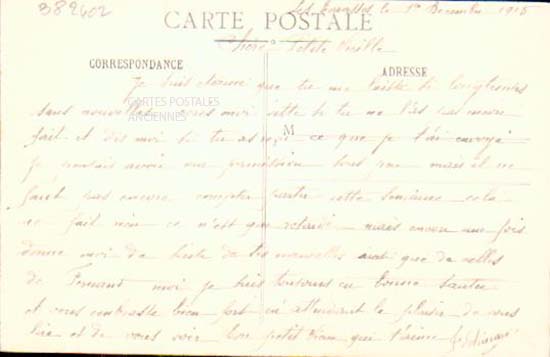 382402
Les le 1er Décembre 1915
CARTE POSTALE
Chère Petite
CORRESPONDANCE
ADRESSE
Je suis étonné que tu me laisse si longtemps
CARTES POSTALES
ANCIENNES
sans nouvelles moi vitte si tu ne l'as pas encore
M
fait et dis moi si tu as reçu ce que je t'ai envoyé
Je pensais avoir une permission tous mais il ne
faut pas encore compter partir cette semaine cela
ne fait rien ce n'est que retardé mais encore une fois
donne moi de suite de tes nouvelles ainsi que de celles
de Fernand moi je suis toujours en bonne santée
et vous embrasse bien fort en attendant le plaisir de vous
lire et de vous voir Ton petit qui t'aime